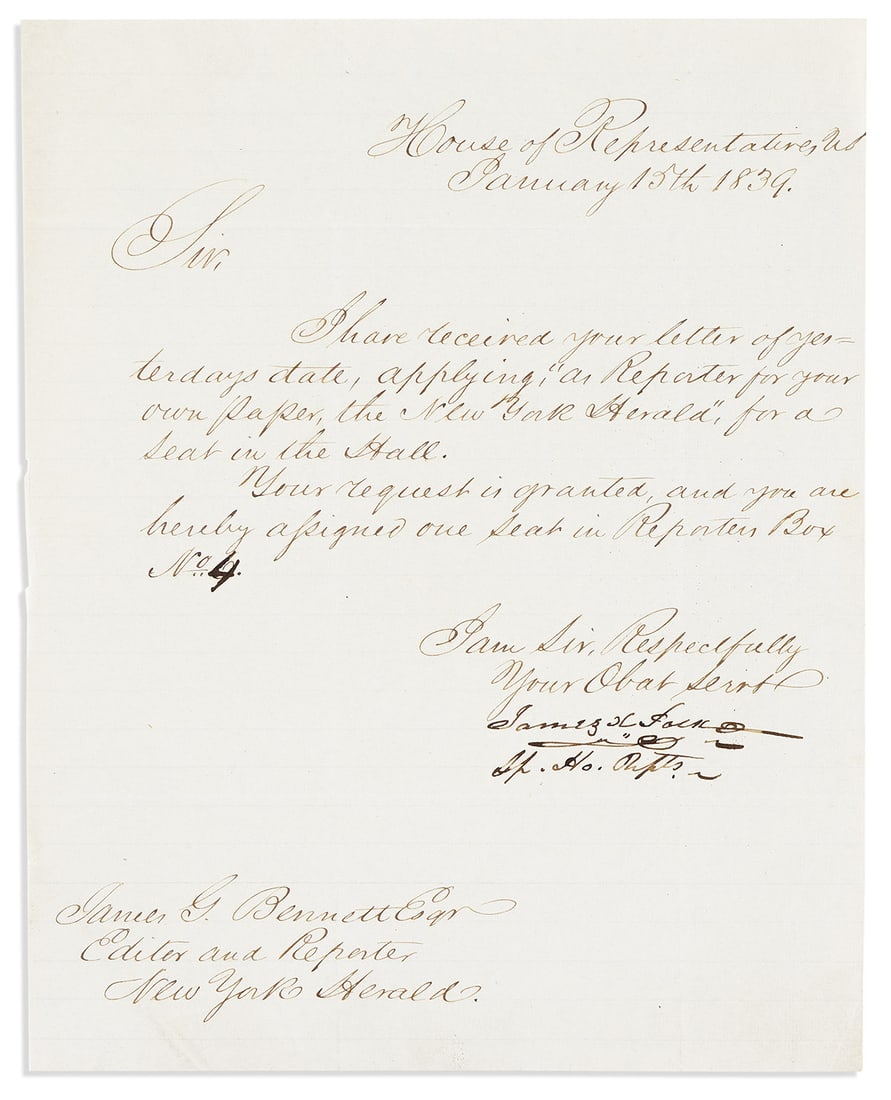 House of Representatives, US
January 15th 1839.
Sir,
I have received your letter of yes=
terdays date, applying, "as Reporter for your
own paper, the New York Herald", for a
seat in the Hall.
Your request is granted, and you are
hereby assigned one seat in Reporters Box
No. 4.
I am Sir, Respectfully
Your Obat Servt
James K Polk
Sp. Ho. Repts.
James G. Bennett Esqr
Editor and Reporter
New York Herald.